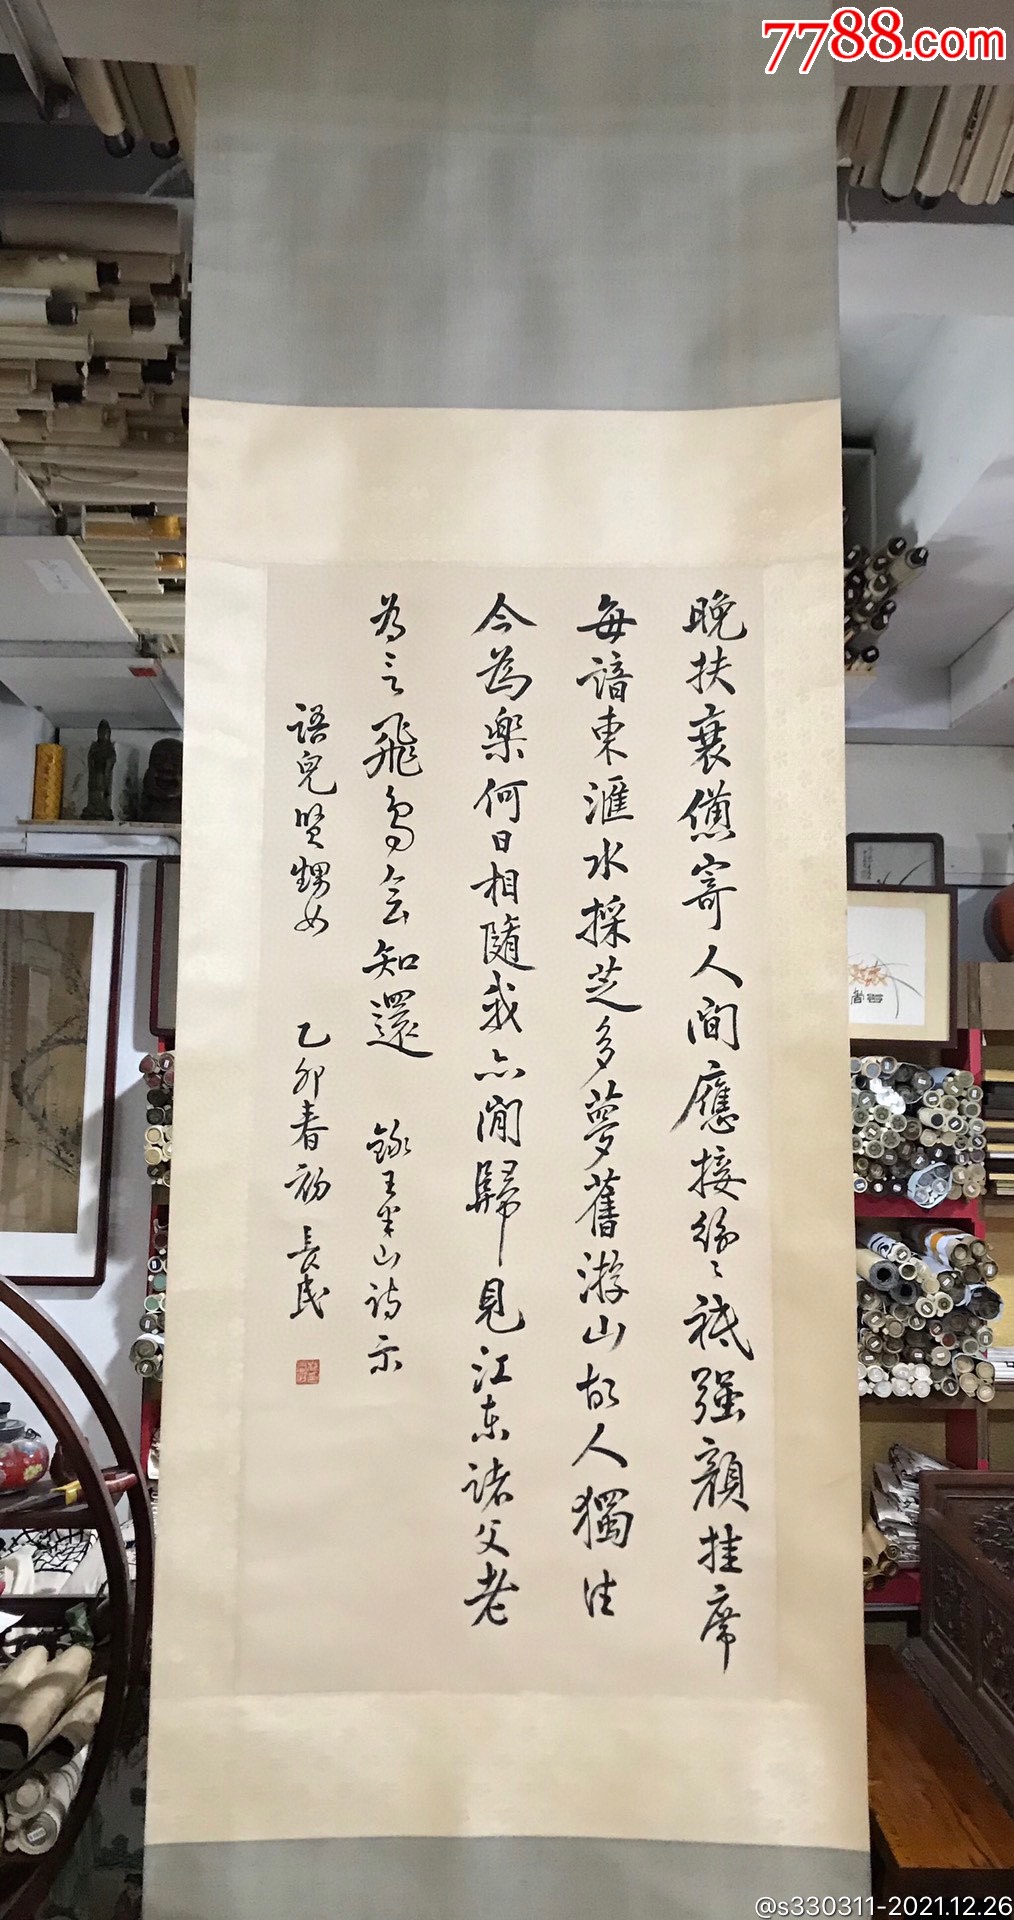 7788.com
晚扶衰憊寄人間應接紛〻祇强顏挂席
每諳東滙水採芝多夢舊游山故人獨往
今為樂何日相隨我亦閒歸見江东諸父老
為言飛鳥会知還 錄王半山詩示
語兒賢甥女 乙卯春初 長民
@s330311-2021.12.26